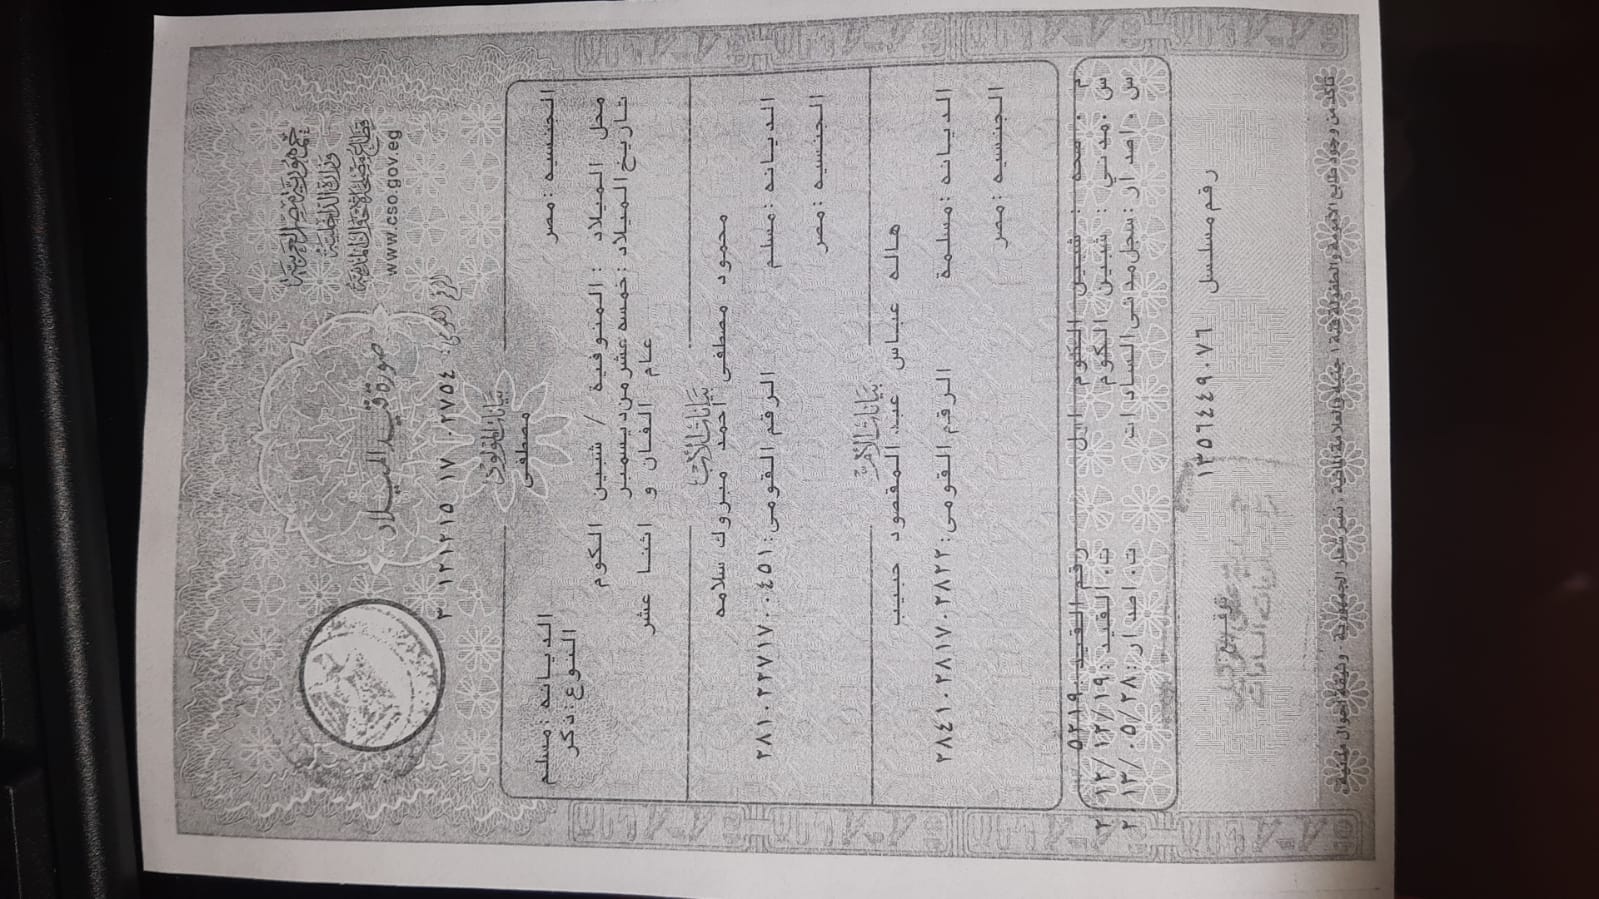 جمهورية مصر العربية
وزارة الداخلية
قطاع مصلحة الأحوال المدنية
www.cso.gov.eg
صورة قيد الميلاد
الرقم القومي: ٣ ١٢١٢١٥ ١٧ ٠٢٧٥٤
بيانات المولود
مصطفى
الجنسيه :مصر
الديانه :مسلم
النوع :ذكر
محل الميلاد : المنوفية / شبين الكوم
تاريخ الميلاد :خمسه عشر من ديسمبر
عام الفان و اثنا عشر
بيانات الأب
محمود مصطفى احمد مبروك سلامه
الديانه :مسلم
الرقم القومى: ٢٨١٠٢٢٧١٧٠٠٤٥١
الجنسيه :مصر
بيانات الأم
هاله عباس عبد المقصود حبيب
الديانه :مسلمة
الرقم القومى: ٢٨٤١٠٢٨١٧٠٢٨٢٢
الجنسيه :مصر
م .صحه : شبين الكوم اول رقم القيد :٥٢١٩
س .مدني : شبين الكوم ت. القيد :٢٠١٢/١٢/١٩
س .اصدار :سجل مدنى السادات ت. اصدار :٢٠١٣/٠٥/٢٨
رقم مسلسل ١٣٥٦٤٤٩٠٧٦